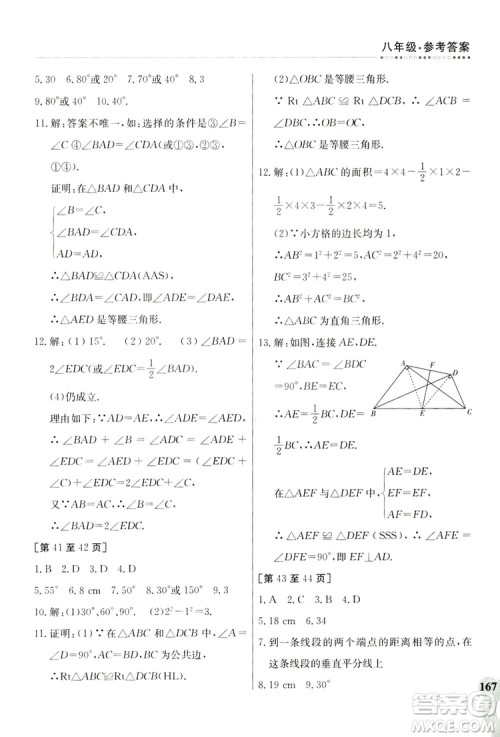 八年级·参考答案
5.30 6.80°或20° 7.8 8.70°或20°
9.80°或40° 10.40°或140°
11.解：答案不唯一，如：选择的条件是②∠B=
∠C ④∠BAD=∠CDA(或①③，或①②，
①④).
证明：在△BAD和△CDA中，
∠B=∠C，
∠BAD=∠CDA，
AD=AD，
∴△BAD≌△CDA(AAS).
∴∠ADB=∠DAC，即∠ADE=∠DAE.
∴△AED是等腰三角形.
12.解：(1)15° (2)20° (3)∠BAD=
2∠EDC(或∠EDC=1/2∠BAD)
(4)仍成立.
理由如下：∵AD=AE，∴∠ADE=∠AED.
∴∠BAD+∠B=∠ADC=∠ADE+
∠EDC=∠AED+∠EDC=(∠EDC+
∠C)+∠EDC=2∠EDC+∠C.
又∵AB=AC，∴∠B=∠C.
∴∠BAD=2∠EDC.
[第41至42页]
1.B 2.D 3.D 4.D
5.55° 6.8 cm 7.90° 8.15° 9.3
10.解：(1)30°、60°、90°. (2)1∶√3∶2
11.证明：(1)∵在△ABC和△DCB中，
∠A=∠D=90°，AC=BD，BC为公共边，
∴Rt△ABC≌Rt△DCB(HL).
(2)△OBC是等腰三角形.
∵Rt△ABC≌Rt△DCB，
∴∠ACB=∠DBC.∴OB=OC.
∴△OBC是等腰三角形.
12.解：(1)△ABC的面积=4×4-1/2×1
×2-1/2×4×3-1/2×2×4=5.
(2)∵小方格的边长均为1，
∴AB²=1²+2²=5，AC²=2²+4²=20，
BC²=3²+4²=25.
∴AB²+AC²=BC².
∴△ABC为直角三角形.
13.解：如图，连接AE、DE.
∵∠BAC=∠BDC
=90°，BE=EC，
∴AE=1/2BC，DE=
1/2BC，∴AE=DE.
A F D B E C
在△AEF和△DEF中，
AE=DE，
AF=DF，
EF=EF，
∴△AEF≌△DEF(SSS).∴∠AFE=
∠DFE=90°，即EF⊥AD.
[第43至44页]
1.A 2.C 3.D 4.D 5.18 cm 6.34
7.到一条线段的两个端点的距离相等的点，
在这条线段的垂直平分线上
8.19 cm 9.30°
167